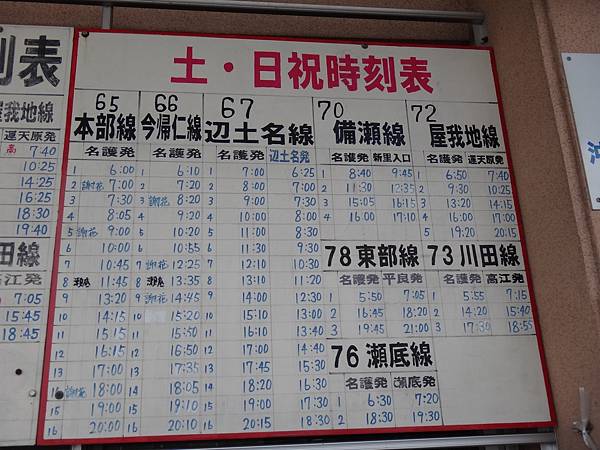 土・日祝時刻表
65
本部線
名護発
1 6:00
2 謝花 7:00
3 7:30
4 8:05
5 謝花 9:00
6 10:00
7 10:45
8 11:45
9 13:20
10 14:15
11 15:15
12 16:15
13 17:00
14 謝花 18:00
15 19:00
16 20:00
66
今帰仁線
名護発
1 6:10
2 7:20
3 謝花 8:20
4 9:20
5 10:20
6 10:55
7 謝花 12:25
8 13:35
9 謝花 14:45
10 15:20
11 15:50
12 16:50
13 17:35
14 18:05
15 19:10
16 20:10
67
辺土名線
名護発 辺土名発
1 7:00 6:25
2 8:00 7:00
3 9:00 7:30
4 10:00 8:00
5 11:00 9:00
6 11:30 9:30
7 12:10 10:30
8 13:10 11:20
9 14:00 12:30
10 15:10 13:30
11 16:10 13:40
12 17:00 14:40
13 17:45 15:30
14 18:20 16:30
15 19:30 17:30
16 20:15 18:30
70
備瀬線
名護発 新里入口
1 8:40 9:45
2 11:30
3 15:05 16:15
4 16:00 17:10
72
屋我地線
名護発 運天原発
1 6:50 7:40
2 9:30 10:25
3 13:20 14:15
4 16:00 17:00
5 19:20 20:15
78 東部線
名護発 平良発
1 5:50 7:05
2 16:45 18:20
3 19:45 21:00
73 川田線
名護発 高江発
1 5:55 7:15
2 14:20 15:40
3 17:30 18:55
76 瀬底線
名護発 瀬底発
1 6:30 7:20
2 18:30 19:30
刻表
屋我地線
運天原発
7:40
10:25
14:25
16:25
18:30
19:40
田線
高江発
7:05
15:45
18:45